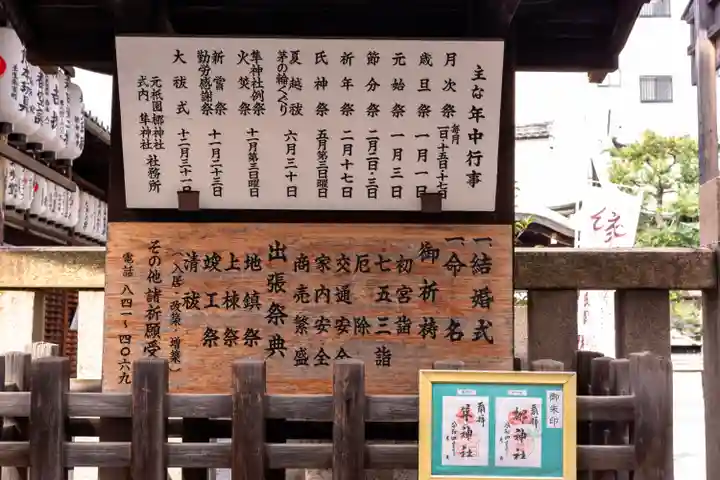 主な年中行事
月次祭 毎月 一日・十五日・十七日
歳旦祭 一月一日
元始祭 一月三日
節分祭 二月二日・三日
祈年祭 二月十七日
氏神祭 五月第三日曜日
夏越祓 茅の輪くぐり 六月三十日
隼神社例祭 火焚祭 十一月第三日曜日
新嘗祭 勤労感謝祭 十一月二十三日
大祓式 十二月三十一日
元祇園梛神社
式内 隼神社 社務所
一結婚式
一命名
御祈祷
初宮詣
七五三詣
厄除
交通安全
家内安全
商売繁盛
出張祭典
地鎮祭
上棟祭
竣工祭
清祓
(入居・改築・増築)
その他諸祈願受
電話 八四一ー四〇六九
御朱印
奉拝
梛神社
奉拝
隼神社